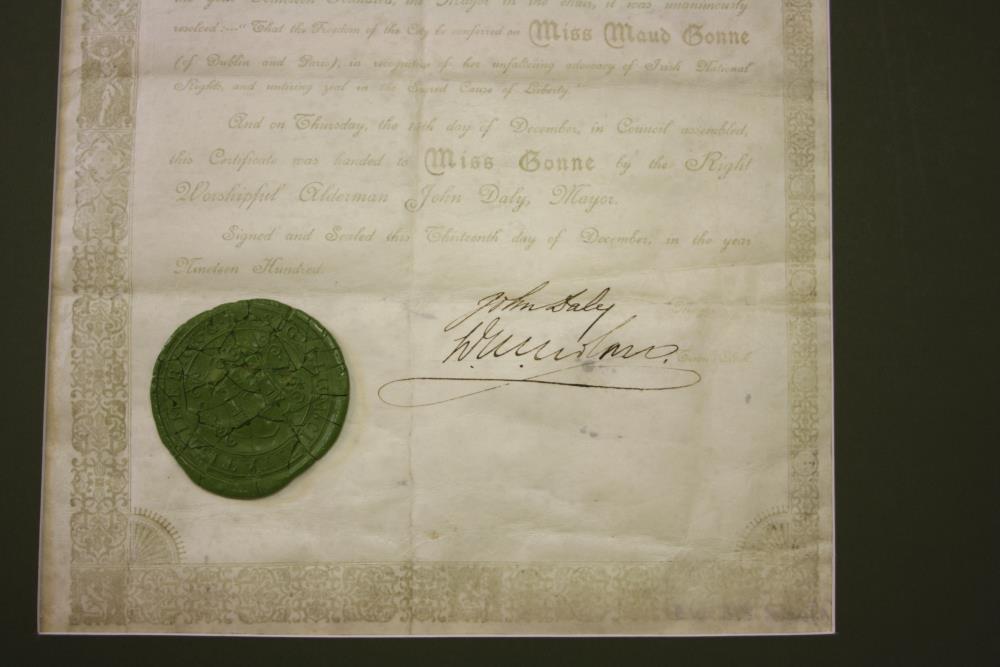 the year Nineteen Hundred, the Mayor in the chair, it was unanimously
resolved:—"That the Freedom of the City be conferred on Miss Maud Gonne
(of Dublin and Paris), in recognition of her unfaltering advocacy of Irish National
Rights, and untiring zeal in the Sacred Cause of Liberty."
And on Thursday, the day of December, in Council assembled,
this Certificate was handed to Miss Gonne by the Right
Worshipful Alderman John Daly, Mayor.
Signed and Sealed this Thirteenth day of December, in the year
Nineteen Hundred.
John Daly
Town Clerk